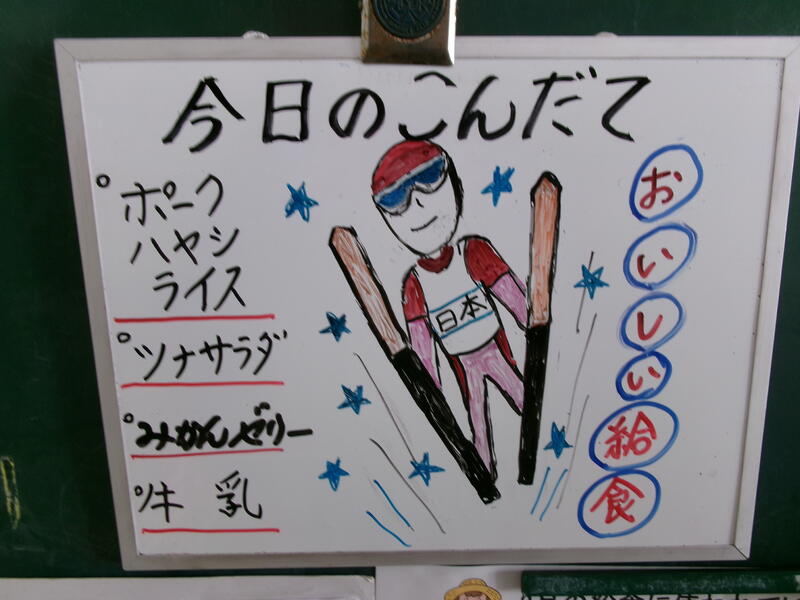 今日のこんだて
。ポーク
ハヤシ
ライス
。ツナサラダ
。みかんゼリー
。牛 乳
日本
おいしい給食